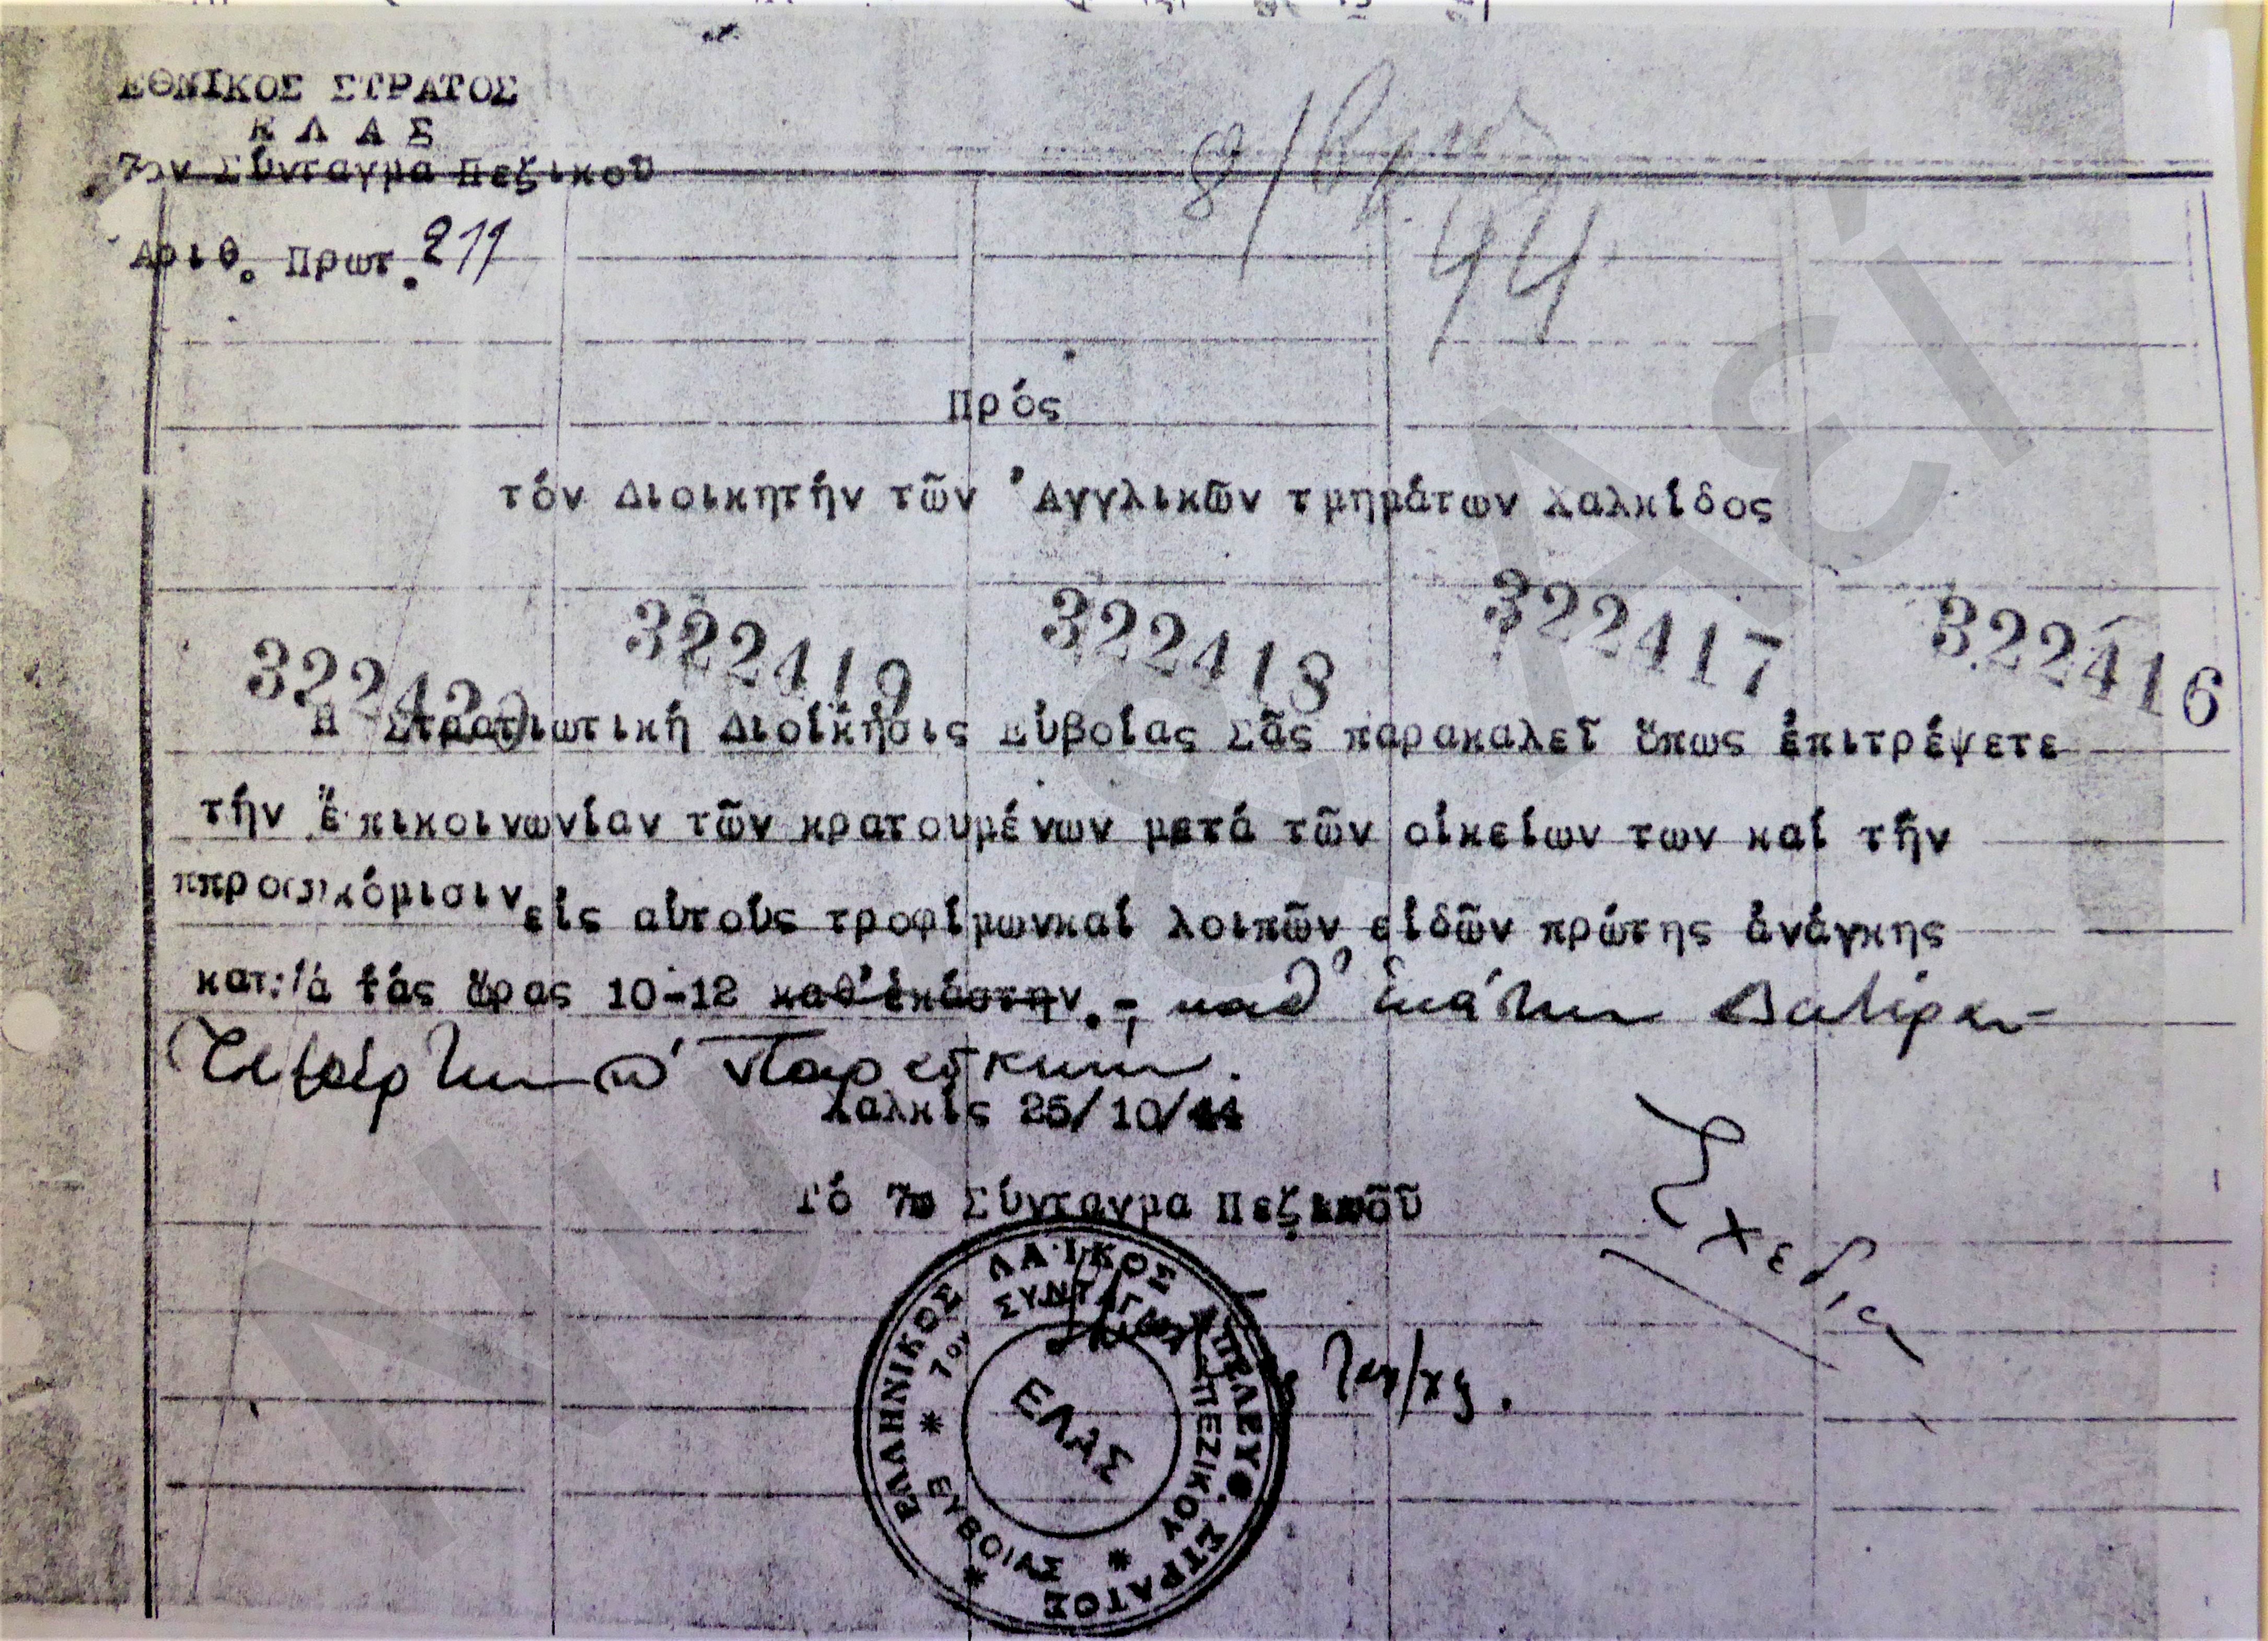 ΕΘΝΙΚΟΣ ΣΤΡΑΤΟΣ
Ε Λ Α Σ
7ον Σύνταγμα Πεζικοῦ
Αριθ. Πρωτ. 211
8/
44
Πρός
τόν Διοικητήν τῶν Ἀγγλικῶν τμημάτων Χαλκίδος
322420 322419 322418 322417 322416
Η Στρατιωτική Διοίκήσις Εὐβοίας Σᾶς παρακαλεῖ ὅπως ἐπιτρέψετε
τήν ἐπικοινωνίαν τῶν κρατουμένων μετά τῶν οἰκείων των καί τήν
ππροσκόμισιν εἰς αὐτούς τροφίμωνκαί λοιπῶν εἰδῶν πρώτης ἀνάγκης
κατ:/ά τάς ὥρας 10-12 καθ' ἑκάστην.-, καθ' ἑκάστην Δευτέραν
Τετάρτην & Παρασκευήν.
Χαλκίς 25/10/44
Τό 7ο Σύνταγμα Πεζικοῦ
Σχέδια
ΕΛΛΗΝΙΚΟΣ ΛΑΪΚΟΣ ΑΠΕΛΕΥΘ. ΣΤΡΑΤΟΣ
7ον ΣΥΝΤΑΓΜΑ ΠΕΖΙΚΟΥ
ΕΥΒΟΙΑΣ
ΕΛΑΣ
Νυν & Αεί